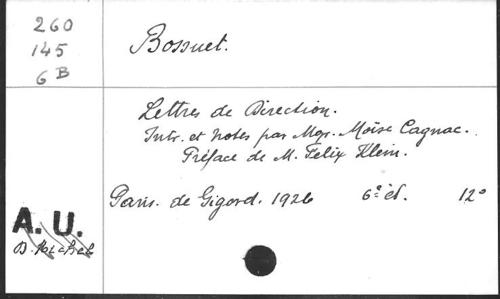 260
145
6 B
Bossuet.
Lettres de Direction.
Intr. et notes par Mgr. Moïse Cagnac.
Préface de M. Felix Klein.
Paris. de Gigord. 1926 6e éd. 12°
A. U.
D.